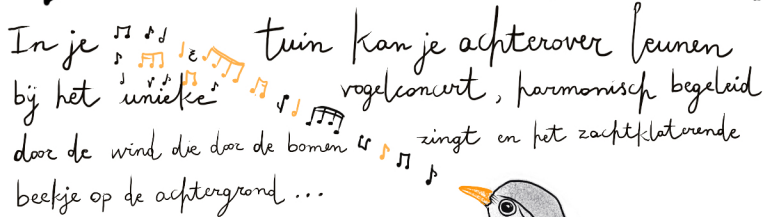 In je tuin kan je achterover leunen
bij het unieke vogelconcert, harmonisch begeleid
door de wind die door de bomen zingt en het zachtklaterende
beekje op de achtergrond ...